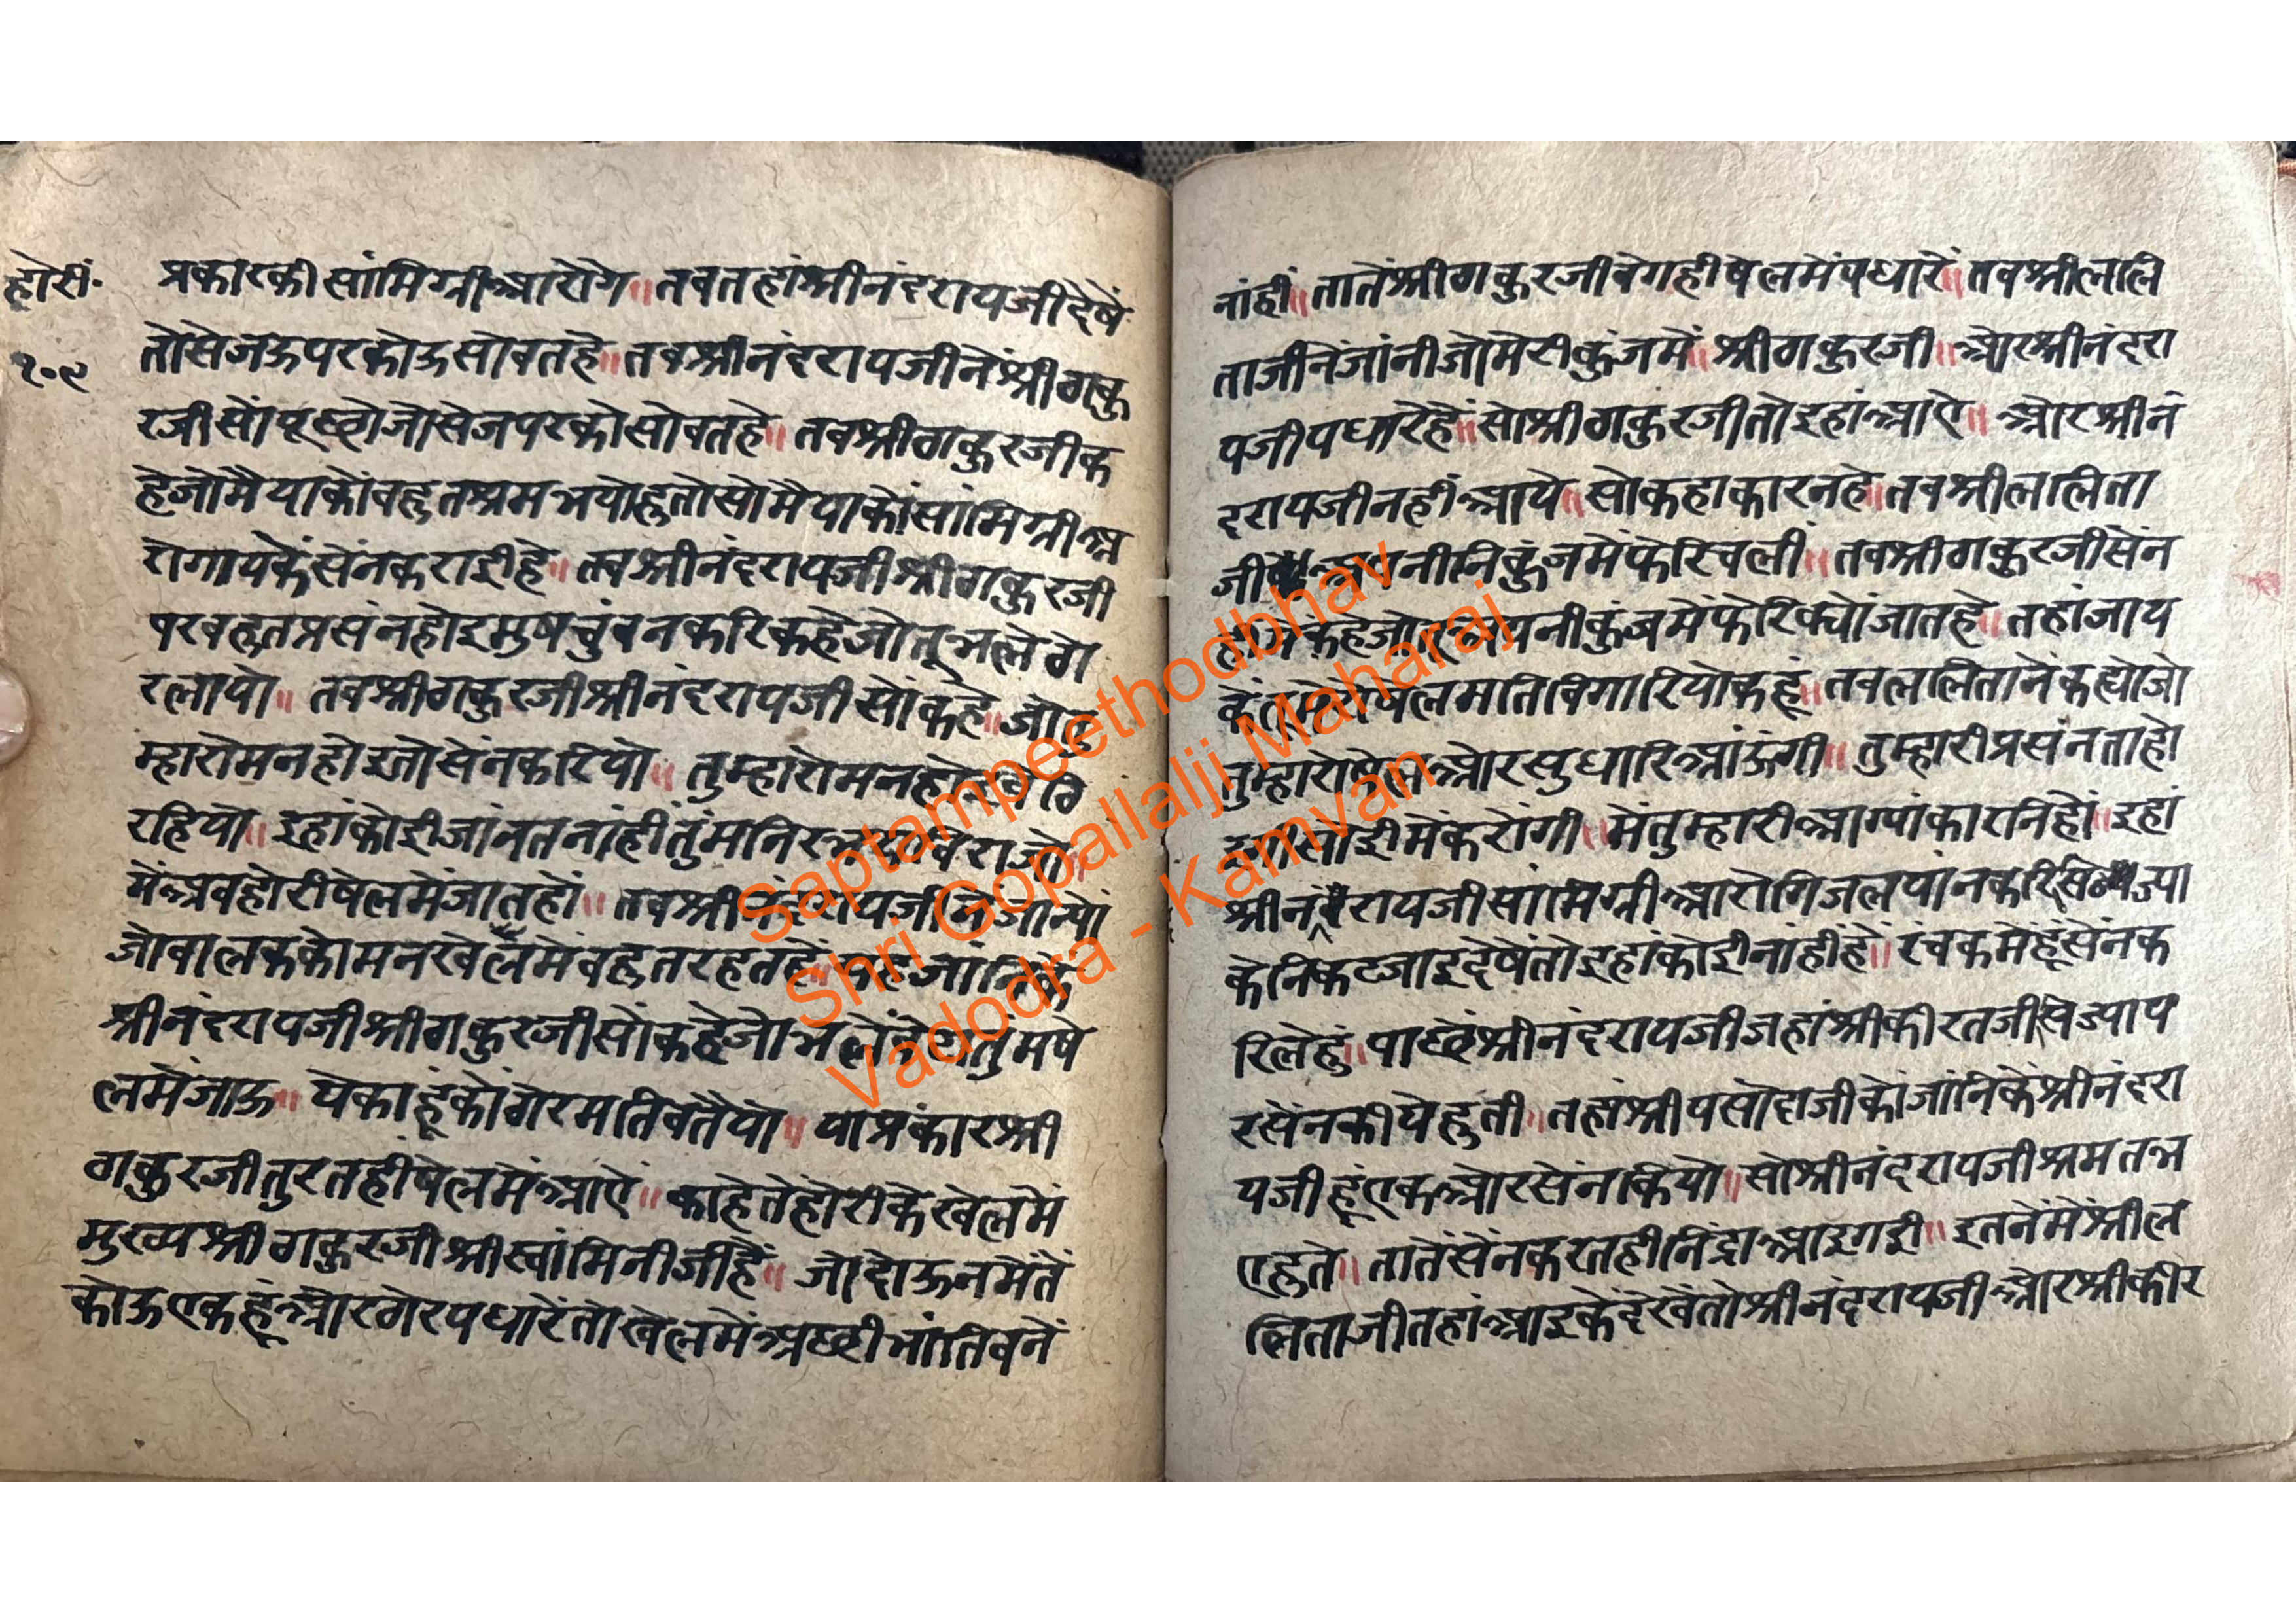 होरी॰
१०९
प्रकारकी सांमिग्री आरोगे ॥ तब तहां श्रीनंदरायजी देषें
तो सेजऊपर कोऊ सोवत हे ॥ तब श्रीनंदरायजीनें श्रीठाकु
रजीसों पूछ्यो जो सेजपर को सोवत हे ॥ तब श्रीठाकुरजी क
हे जो मैं याकों बहुत श्रम भयो हुतो सो मैं याकों सांमिग्री आ
रोगायकें सेंन कराई हे ॥ तब श्रीनंदरायजी श्रीठाकुरजी
पर बहुत प्रसंन होइ मुष चुंबन करि कहे जो तू भले ठो
र लायो ॥ तब श्रीठाकुरजी श्रीनंदरायजीसों कहे ॥ जो तु
म्हारो मन होइ तो सेंन करियो ॥ तुम्हारो मन होइ बेठि
रहियो ॥ इहां कोई जांनत नांही तुंम
में अब होरी षेलमें जात हों ॥ तब श्रीनंदरायजीनें जान्यो
जो बालकको मन खेलमें बहुत रहत हे ॥ यह जांनिकें
श्रीनंदरायजी श्रीठाकुरजीसों कहे जो भलें तुम षे
लमें जाऊ ॥ ये काहूंकों ठोर मति बतैयो ॥ या प्रकार श्री
ठाकुरजी तुरतही षेलमें आऐ ॥ काहेतें होरीके खेलमें
मुख्य श्रीठाकुरजी श्रीस्वांमिनीजी हें ॥ जो दोऊनमेंतें
कोऊ एकहूं ओर ठोर पधारें तो खेलमें अछी भांति बनें
नांहीं ॥ तातें श्रीठाकुरजी वेगही षेलमें पधारें ॥ तब श्रीललि
ताजीनें जांनी जो मेरी कुंजमें ॥ श्रीठाकुरजी ॥ ओर श्रीनंदरा
यजी पधारे हें ॥ सो श्रीठाकुरजी तो इहां आऐ ॥ ओर श्रीनं
दरायजी नहीं आये ॥ सो कहा कारन हे ॥ तब श्रीललिता
जी अपनी निकुंजमें फेरि चली ॥ तब श्रीठाकुरजी सेंन
कहे जो तू अपनी कुंजमें फेरि क्यों जात हे ॥ तहां जाय
कें षेल मति बिगारियो कहूं ॥ तब ललितानें कह्यो जो
तुम्हारो षेल ओर सुधारि आंऊंगी ॥ तुम्हारी प्रसंनता हो
सोई में करोंगी ॥ में तुम्हारी आग्यांकारनि हों ॥ इहां
श्रीनंदरायजी सांमिग्री आरोगि जलपांन करि सिज्या
के निकट जाइ देषें तो इहां कोई नांहीं हें ॥ रंचक में हूं सेंन क
रि लेहुं ॥ पाछें श्रीनंदरायजी जहां श्रीकीरतजी सिज्याप
र सेंन कीये हुती ॥ तहां श्रीयसोदाजीकों जांनिकें श्रीनंदरा
यजी हूं एक ओर सेंन कियो ॥ सो श्रीनंदरायजी श्रमत भ
ए हुते ॥ तातें सेंन करतही निंद्रा आइ गई ॥ इतनेंमें श्रील
लिताजी तहां आइकें देखें तो श्रीनंदरायजी ओर श्रीकीर
Saptampeethodbhav
Shri Gopallalji Maharaj
Vadodra - Kamvan